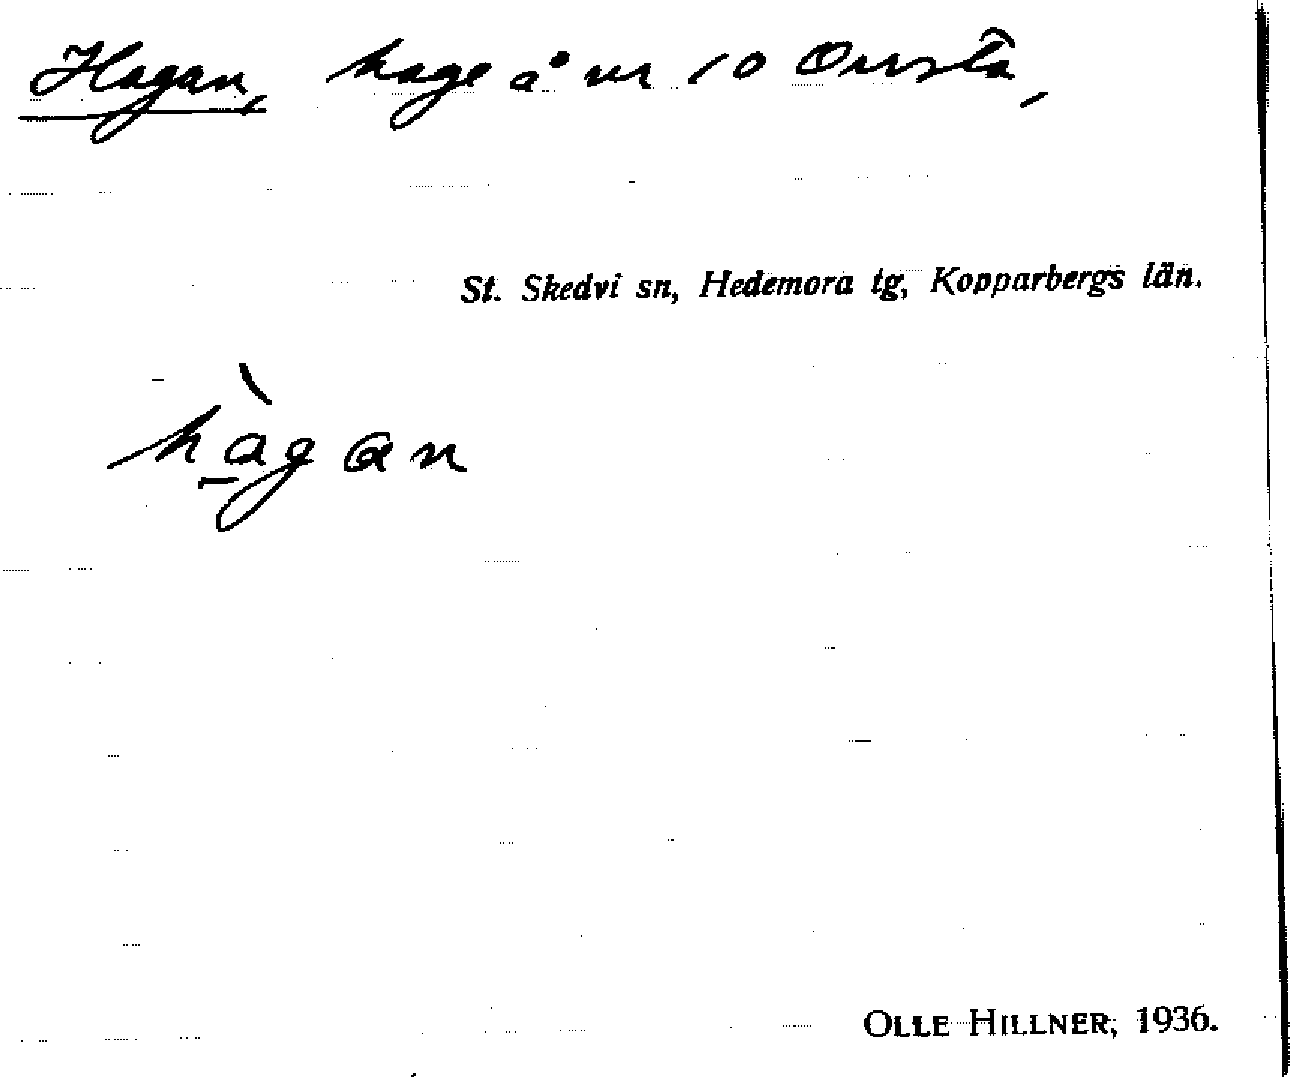 Hagan, hage å nr 10 Onsta,
St. Skedvi sn, Hedemora tg, Kopparbergs län.
hàgan
OLLE HILLNER, 1936.